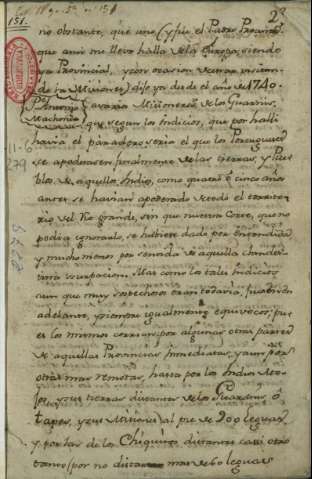 151.
no obstante, que uno (y fue el Padre Provincial
que aun me llevo halla de la Europa, siendo
ya Provincial, y con ocasion de
Misiones) dixo ya desde el año de 1740.
P. Antonio
Machoni
a varios Misioneros de los Guaranis,
que segun los Indicios, que por halli
havia el paradero seria el que los Portugueses
se apoderasen finalmente de las tierras, y Pue-
blos de aquellos Indios, como quatro o cinco años
antes se havian apoderado de todo el territo-
rio del Rio grande, sin que nuestra Corte, que no
podia ignorarlo, se hubiese dado por entendida
y mucho menos por sentida de aquella clandes-
tina usurpacion. Mas como los tales Indicios
aun que muy sospechosos eran todavia,
adelante, y siempre igualmente equivocos; pues
es lo mismo corrian por algunas otras partes
de aquellas Provincias inmediatas, y aun por
otras mas remotas, hasta por los Indios Mo-
jos, y sus tierras distantes de los Guaranis, ó
tapes, y sus Misiones) al pie de 900 leguas
y por las de los Chiquitos distantes casi otro
tanto (por no distar mas de 60 leguas
11-6
279
2279